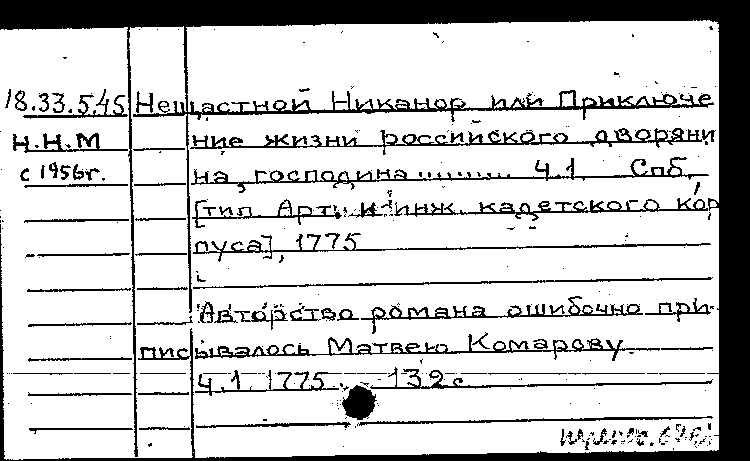 18.33.5.45 Нещастной Никанор или Приключе
Н.Н.М ние жизни российского дворяни
с 1956г. на, господина ......... Ч.1. Спб.
[тип. Арт. и инж. кадетского кор
пуса], 1775
Авторство романа ошибочно при-
писывалось Матвею Комарову.
Ч.1 1775. 132с